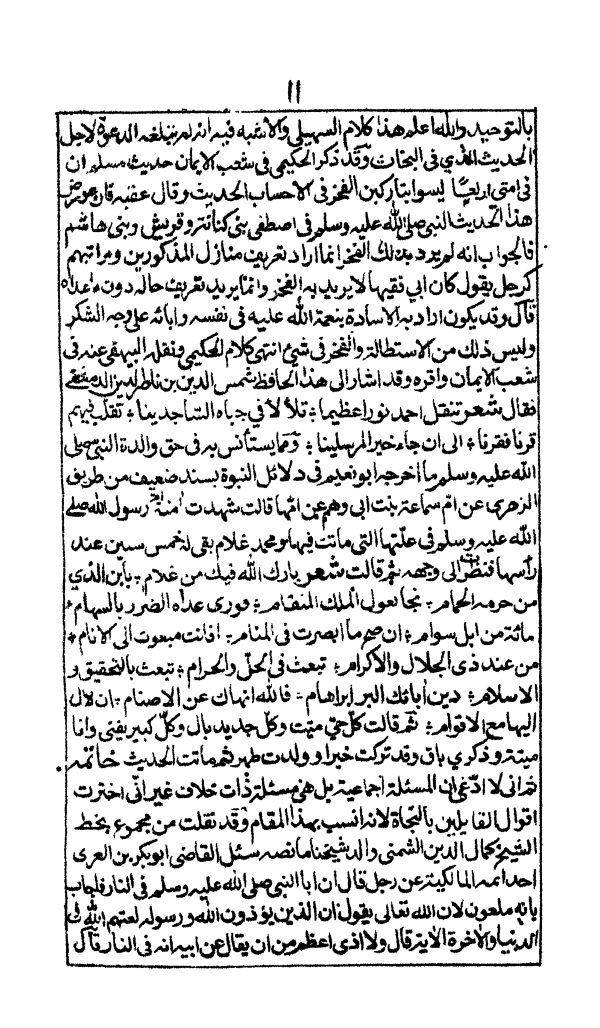 ۱۱
بالتوحيد والله اعلم هذا كلام السهيلي والاشبه فيه انه لم تبلغه الدعوة لاجل
الحديث الذي في البخات وقد ذكر الحكيمي في شعب الايمان حديث مسلم ان
في امتى اربعا ليسوا بتاركين الفخر في الاحساب الحديث وقال عقبه فان عورض
هذا الحديث النبي صلى الله عليه وسلم في اصطفى بنى كنانة وقريش وبنى هاشم
فالجواب انه لم يرد بذلك الفخر انما اراد تعريف منازل المذكورين ومراتبهم
كرجل يقول كان ابي فقيها لا يريد به الفخر وانما يريد تعريف حاله دون ماعداه
قال وقد يكون اراد به الاسادة بنعمة الله عليه في نفسه وابائه على وجه الشكر
وليس ذلك من الاستطالة والفخر في شئ انتهى كلام الحكيمي ونقله البيهقي عنه في
شعب الايمان واقره وقد اشار الى هذا الحافظ شمس الدين بن ناصر الدين الدمشقي
فقال شعر تنقل احمد نورا عظيما؛ تلألأ في جباه الساجدينا؛ تقلب فيهم
قرنا فقرنا؛ الى ان جاء خير المرسلينا؛ ومما يستأنس به في حق والدة النبي صلى
الله عليه وسلم ما اخرجه ابو نعيم في دلائل النبوة بسند ضعيف من طريق
الزهرى عن ام سماعة بنت ابى وهم عن امها قالت شهدت امنة ام رسول الله صلى
الله عليه وسلم في علتها التى ماتت فيها ومحمد غلام بقى له خمس سنين عند
رأسها فنظرت الى وجهه ثم قالت شعر بارك الله فيك من غلام؛ يا بن الذي
من حرمه الحمام؛ نجا بعول الملك المنقام؛ فورى عداه الضرر بالسهام؛
مائة من ابل سوام؛ ان صح ما ابصرت في المنام؛ فانت مبعوث الى الانام؛
من عند ذى الجلال والاكرام؛ تبعث في الحل والحرام؛ تبعث بالتحقيق و
الاسلام؛ دين اباتك البر ابراهام؛ فالله انهاك عن الاصنام؛ ان لال
اليها مع الاقوام؛ ثم قالت كل حي ميت وكل جديد بال وكل كبير يفنى وانا
ميتة وذكري باق وقد تركت خيرا وولدت طهر ثم ماتت الحديث خاتمه
ثم انى لا ادعى ان المسئلة اجماعية بل هى مسئلة ذات خلاف غير انى اخترت
اقوال القايلين بالنجاة لانه انسب بهذا المقام وقد نقلت من مجموع بخط
الشيخ كمال الدين الشمنى والد شيخنا ما نصه سئل القاضى ابو بكر بن العربى
احد ائمه المالكية عن رجل قال ان ابا النبي صلى الله عليه وسلم في النار فاجاب
بانه ملعون لان الله تعالى يقول ان الذين يؤذون الله ورسوله لعنهم الله في
الدنيا والاخرة الاية قال ولا اذى اعظم من ان يقال عن ابيه انه في النار قال